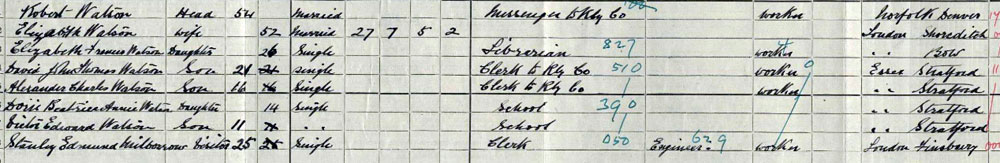 Robert Watson Head 54 Married Messenger to Rly Co worker Norfolk Denver
Elizabeth Watson Wife 52 Married 27 7 5 2 London Shoreditch
Elizabeth Frances Watson Daughter 26 Single Librarian 827 worker " Bow
David John Thomas Watson Son 21 21 Single Clerk to Rly Co 510 worker Essex Stratford
Alexander Charles Watson Son 16 16 Single Clerk to Rly Co worker " " Stratford
Doris Beatrice Annie Watson Daughter 14 Single School 390 " " Stratford
Victor Edward Watson Son 11 " " School " " Stratford
Stanley Edmund Milborrow Visitor 25 25 Single Clerk 050 Engineer 629 worker London Finsbury